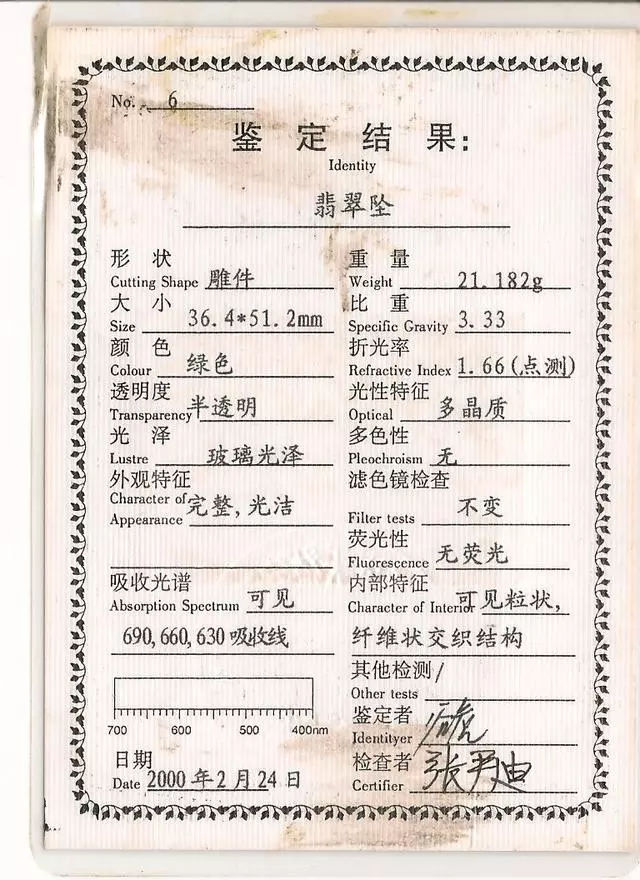 No. 6
鉴定结果:
Identity
翡翠坠
形状
Cutting Shape 雕件
重量
Weight 21.182g
大小
Size 36.4*51.2mm
比重
Specific Gravity 3.33
颜色
Colour 绿色
折光率
Refractive Index 1.66(点测)
透明度
Transparency 半透明
光性特征
Optical 多晶质
光泽
Lustre 玻璃光泽
多色性
Pleochroism 无
外观特征
Character of Appearance 完整,光洁
滤色镜检查
Filter tests 不变
荧光性
Fluorescence 无荧光
吸收光谱
Absorption Spectrum 可见
690,660,630吸收线
内部特征
Character of Interior 可见粒状,
纤维状交织结构
700 600 500 400nm
其他检测/
Other tests
鉴定者
Identityer
日期
Date 2000年2月24日
检查者
Certifier